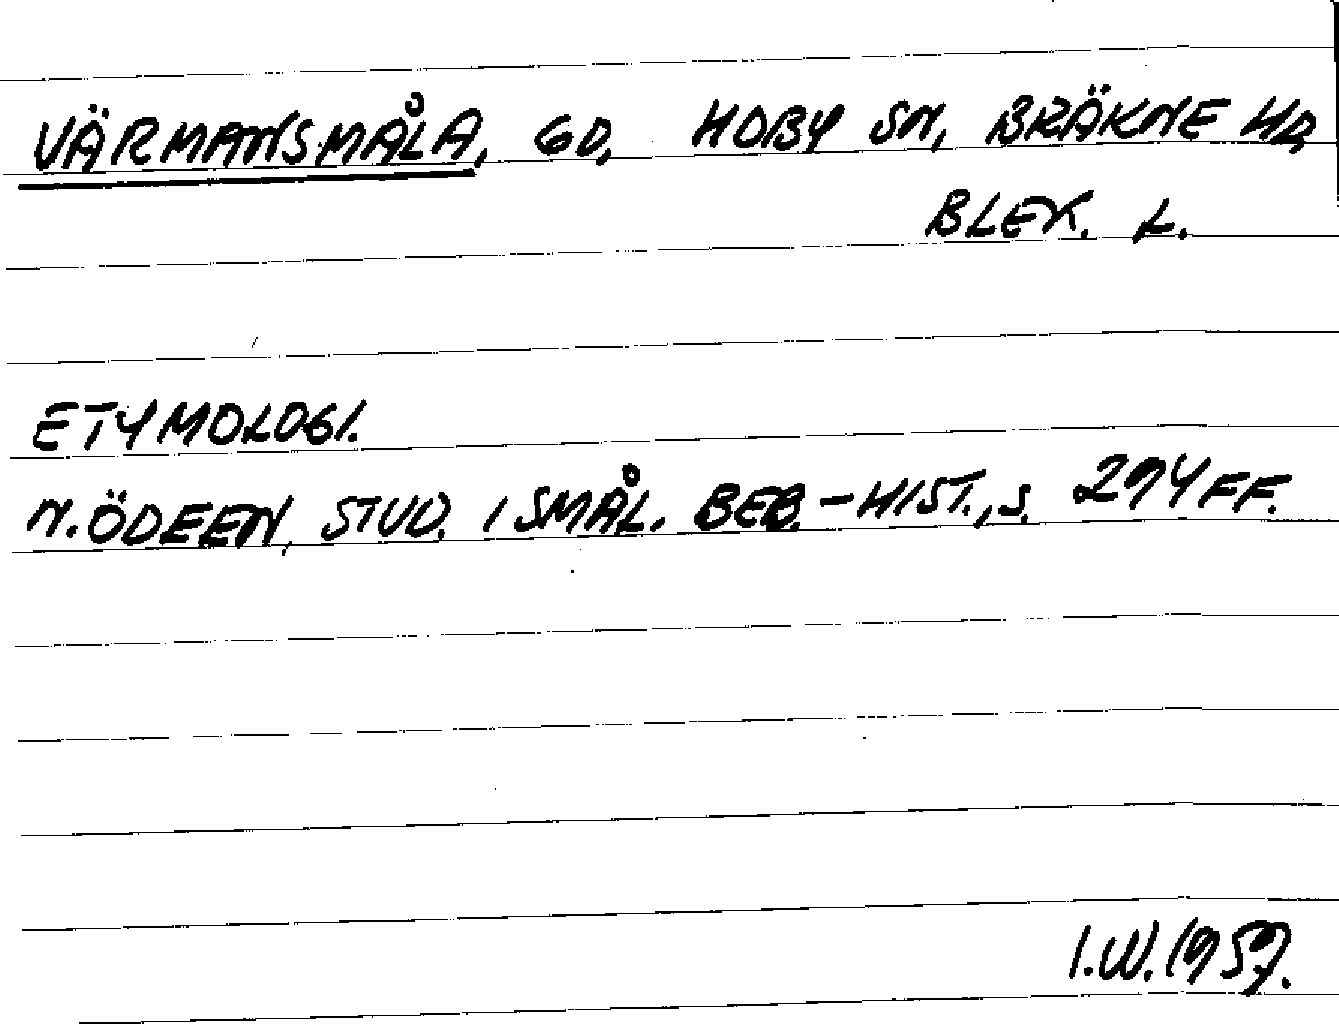 VÄRMANSMÅLA, GD, HOBY SN, BRÄKNE HD,
BLEK. L.
ETYMOLOGI.
N. ÖDEEN, STUD. I SMÅL. BEB.-HIST., S. 294 FF.
I.W. 1959.